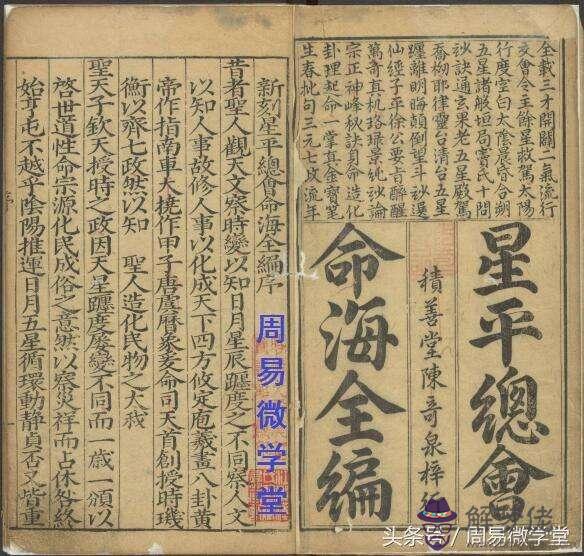 全載三才開闢一氣流行
交會令主餘星啟駕太陽
行度堂白太陰晨昏合朔
五星諸般垣局審氏十問
玅訣通玄果老五星殿駕
喬拗耶律靈台清台五星
躔離明晦顛倒望斗玅選
仙經子平徐公要旨醉醒
萬奇真机珞琭景純玅論
宗正神峰秋訣貝命造化
卦理起命一掌真金寶鑒
生春批句三元七政流年
星平總會
積善堂陳奇泉梓行
命海全編
新刻星平總會命海全編序
昔者聖人觀天文察時變以知日月星辰躔度之不同察人文
以知人事故修人事以化成天下四方攸定庖羲畫八卦黃
帝作指南車大撓作甲子唐虞曆象爰命司天首創授時璣
衡以齊七政然以知 聖人造化民物之大哉
聖天子欽天授時之政因天星躔度屢變不同而一歲一頒以
啓世道性命宗源化民成俗之意然以察災祥而占休咎終
始亨屯不越乎陰陽推運日月五星循環動靜貞否又皆重
周易微学堂
头条号/周易微学堂